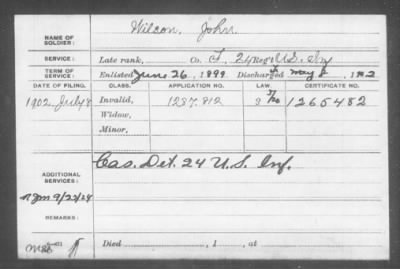 NAME OF SOLDIER: Wilson, John
SERVICE: Late rank, Co. F, 24 Reg't U.S. Inf
TERM OF SERVICE: Enlisted June 26, 1899 Discharged May 1902
DATE OF FILING. CLASS. APPLICATION NO. LAW. CERTIFICATE NO.
1902 July 8 Invalid, 1287.812 1265482
Widow,
Minor,
ADDITIONAL SERVICES: Cas. Det. 24 U.S. Inf.
9/22/24
REMARKS:
Died , 1 , at